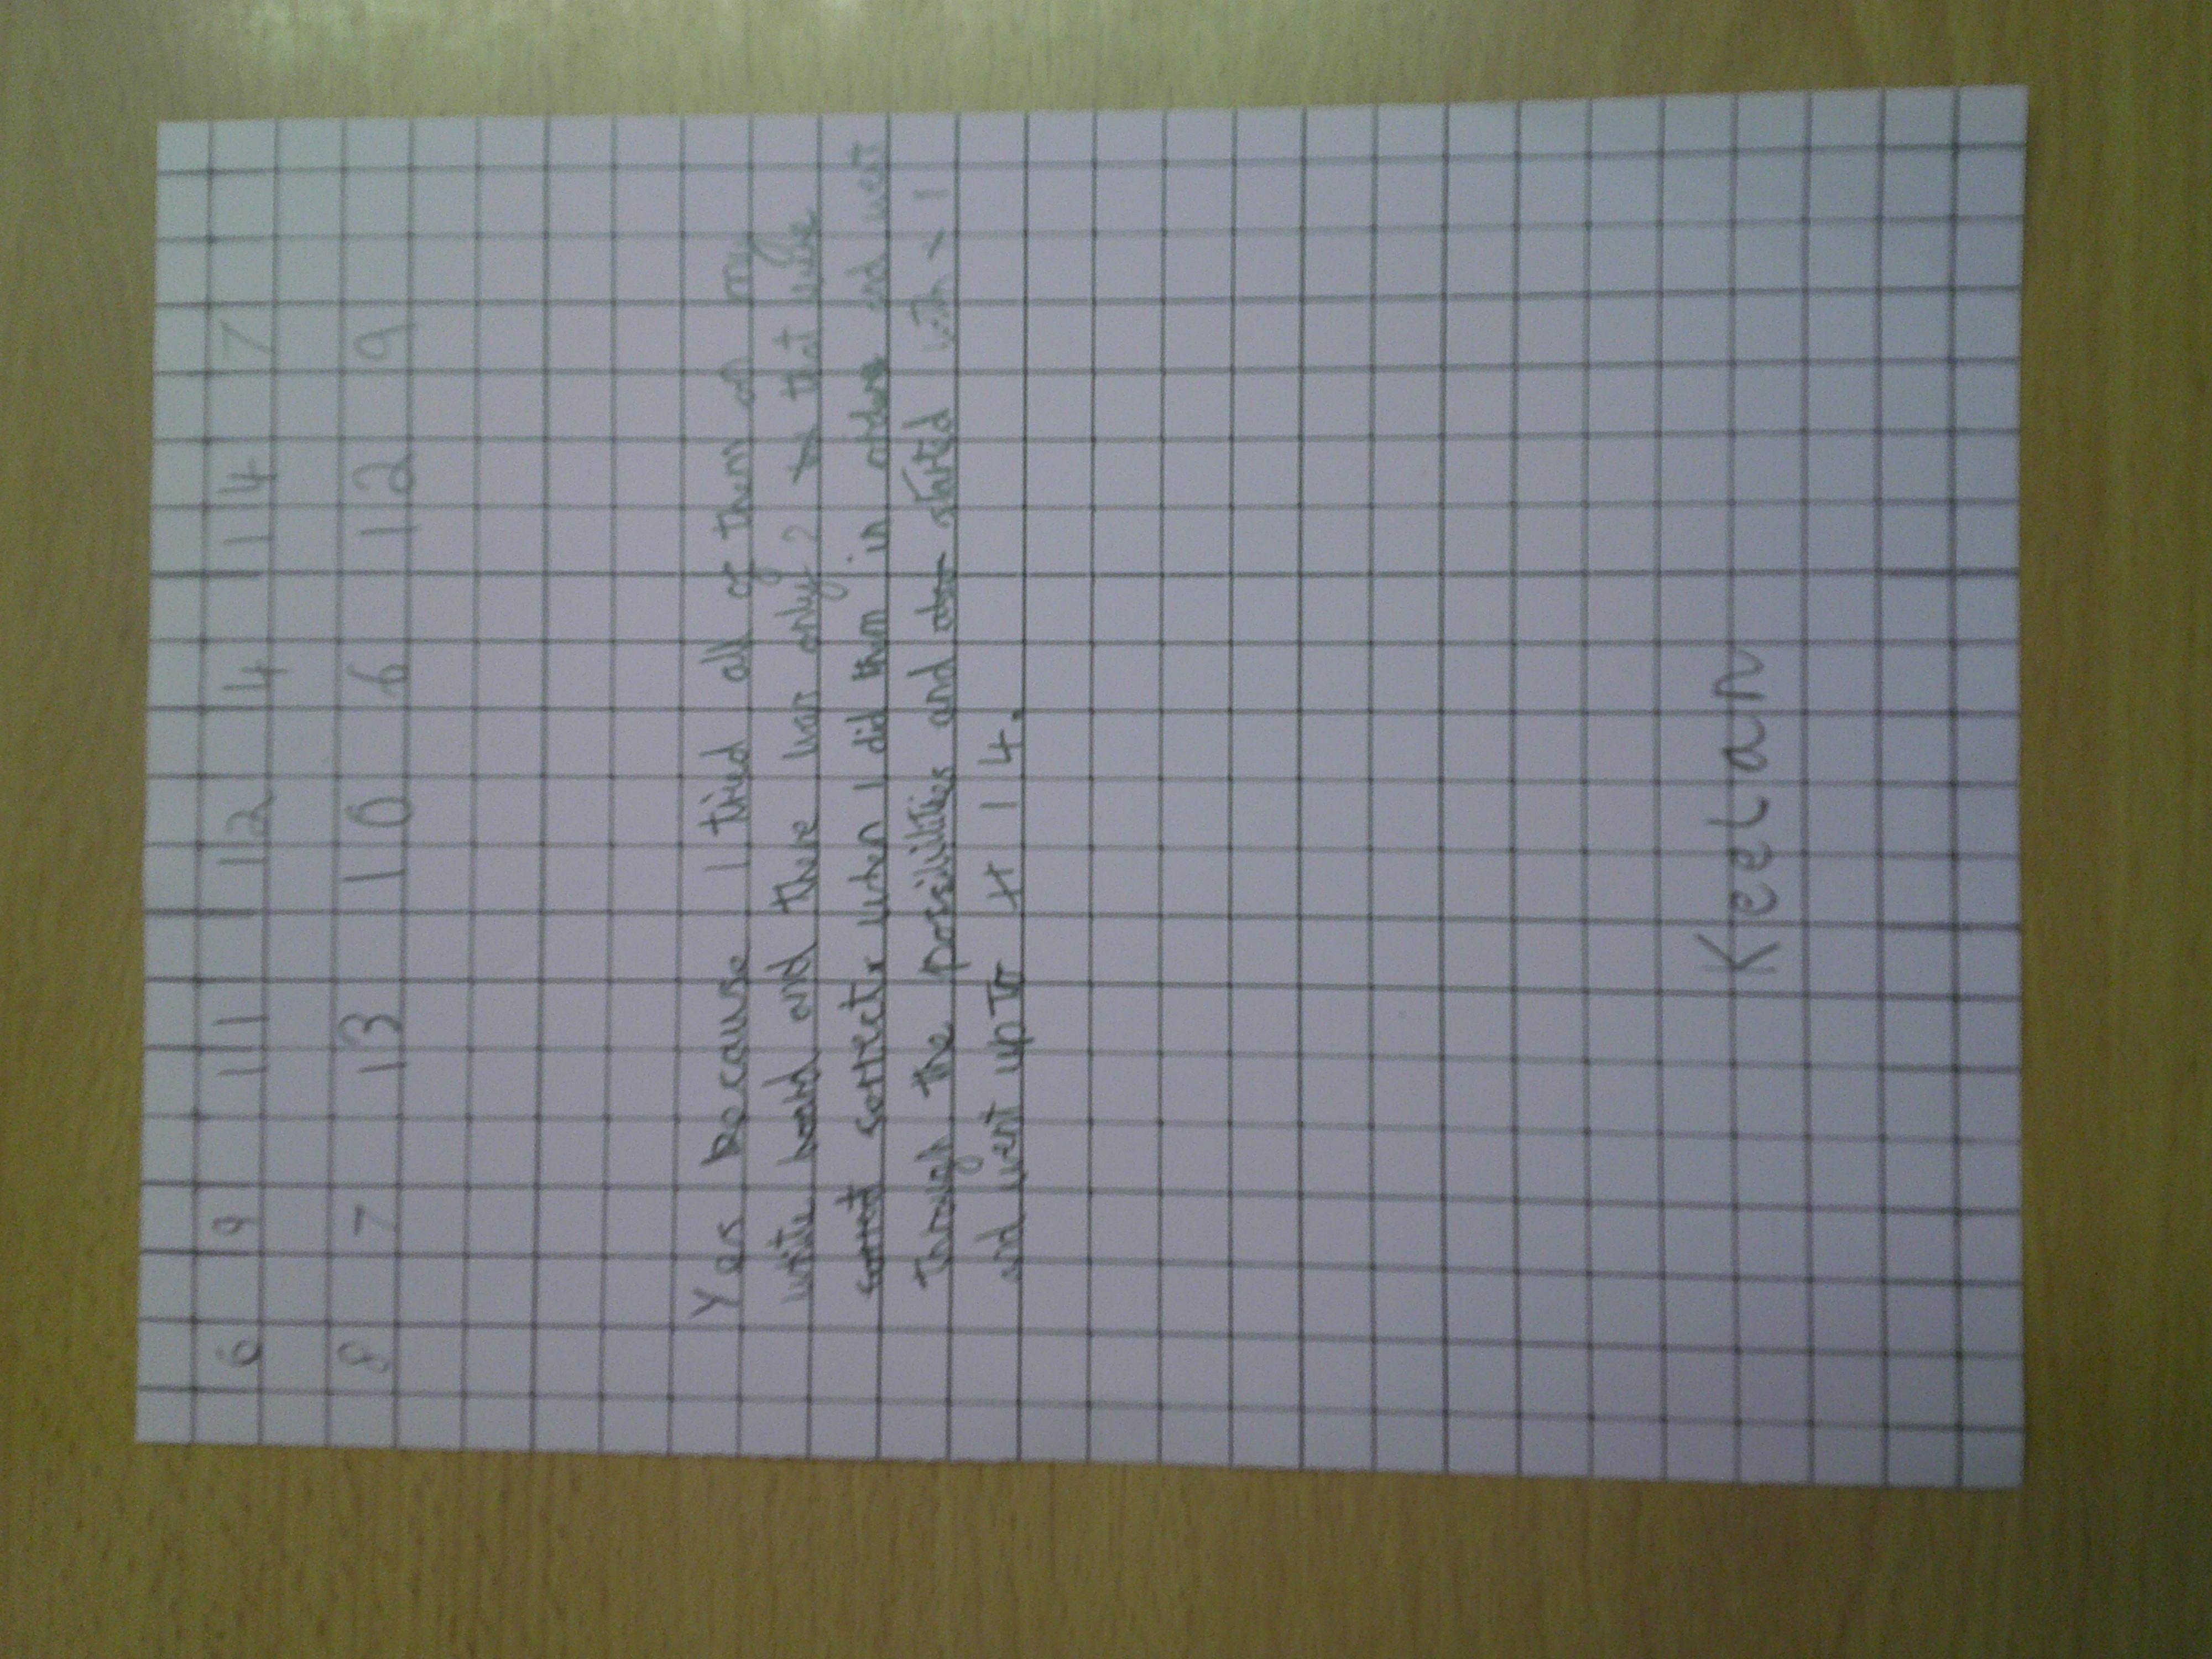 6 9 11 12 14 14 7
8 7 13 10 6 12 9
Yes because I tried all of them on my
white board and there was only 2 that were
correct when I did them in order and went
through the possibilities and started with x 1
and went up to 14.
Keelan